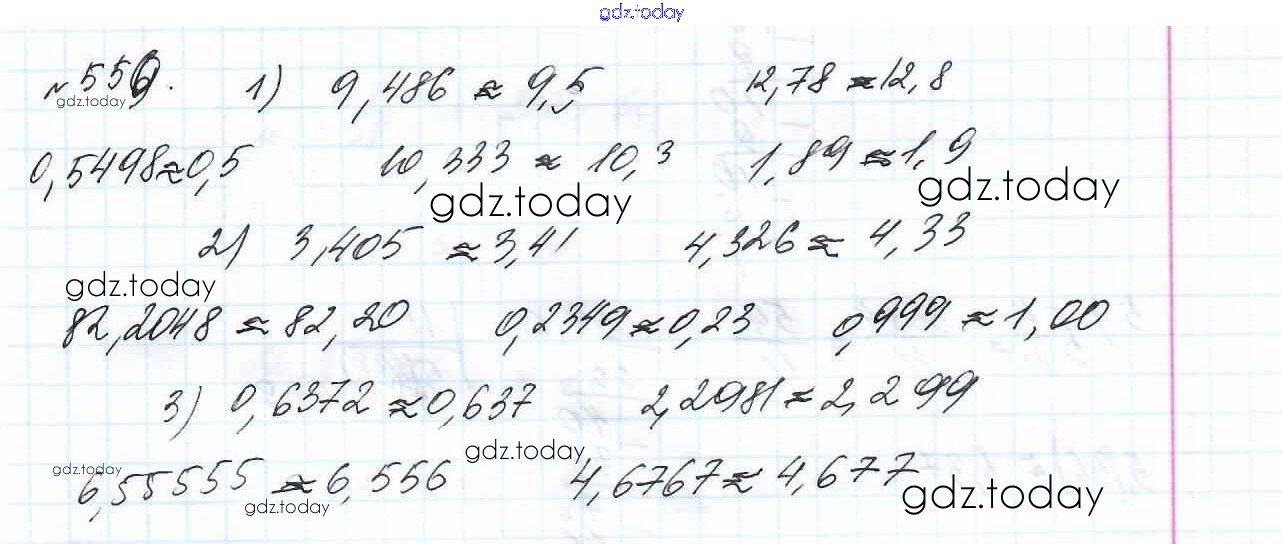 gdz.today
№ 559. 1) 9,486 ≈ 9,5 12,78 ≈ 12,8
gdz.today
0,5498 ≈ 0,5 10,333 ≈ 10,3 1,89 ≈ 1,9
gdz.today gdz.today
2) 3,405 ≈ 3,41 4,326 ≈ 4,33
gdz.today
82,2048 ≈ 82,20 0,2349 ≈ 0,23 0,999 ≈ 1,00
3) 0,6372 ≈ 0,637 2,2981 ≈ 2,299
gdz.today
gdz.today
6,55555 ≈ 6,556 4,6767 ≈ 4,677
gdz.today gdz.today